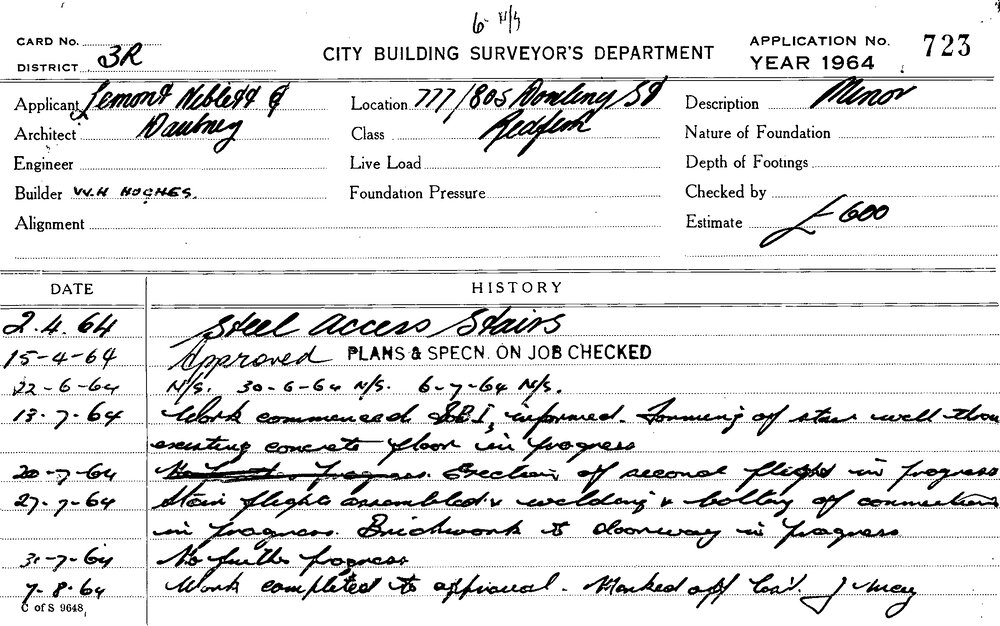 6 N/S
CARD No.
DISTRICT 3R
CITY BUILDING SURVEYOR'S DEPARTMENT
APPLICATION No. 723
YEAR 1964
Applicant Lemont Neblett &
Architect Daubney
Engineer
Builder W.H HUGHES.
Alignment
Location 777/805 Dowling St
Class Redfern
Live Load
Foundation Pressure
Description Minor
Nature of Foundation
Depth of Footings
Checked by
Estimate £600
DATE HISTORY
2.4.64 Steel Access Stairs
15-4-64 Approved PLANS & SPECN. ON JOB CHECKED
22-6-64 N/S. 30-6-64 N/S. 6-7-64 N/S.
13-7-64 Work commenced informed. Forming of stair well thru
existing concrete floor in progress
20-7-64 Erection of second flight in progress
27-7-64 Stair flights assembled & welding & bolting of connections
in progress. Brickwork to doorway in progress
31-7-64 No further progress
7.8.64 Work completed to approval. Marked off J May
C of S 9648